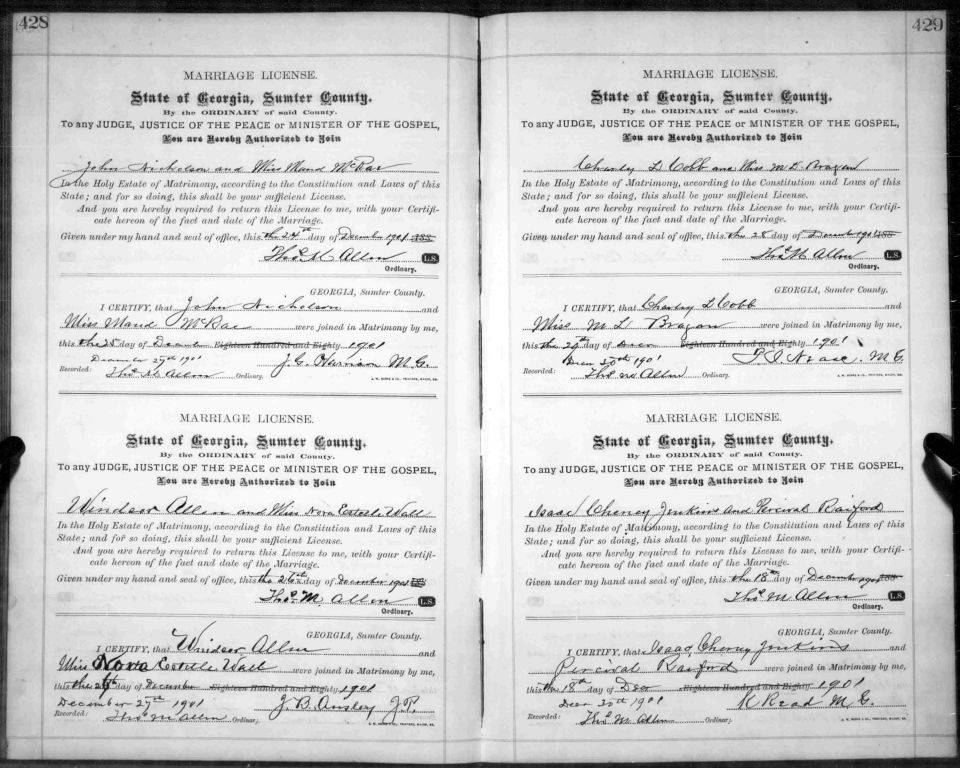 428
MARRIAGE LICENSE.
State of Georgia, Sumter County.
By the ORDINARY of said County.
To any JUDGE, JUSTICE OF THE PEACE or MINISTER OF THE GOSPEL,
You are Hereby Authorized to Join
John Nicholson and Miss Maud McRae
In the Holy Estate of Matrimony, according to the Constitution and Laws of this
State; and for so doing, this shall be your sufficient License.
And you are hereby required to return this License to me, with your Certifi-
cate hereon of the fact and date of the Marriage.
Given under my hand and seal of office, this the 24th day of December 1901 188
Thos M Allen L.S.
Ordinary.
GEORGIA, Sumter County.
I CERTIFY, that John Nicholson and
Miss Maud McRae were joined in Matrimony by me,
this the 25 day of Decembr Eighteen Hundred and Eighty 1901
December 27th 1901 J.G. Harrison M.G.
Recorded: Thos M Allen Ordinary.
MARRIAGE LICENSE.
State of Georgia, Sumter County.
By the ORDINARY of said County.
To any JUDGE, JUSTICE OF THE PEACE or MINISTER OF THE GOSPEL,
You are Hereby Authorized to Join
Windsor Allen and Miss Nora Estelle Wall
In the Holy Estate of Matrimony, according to the Constitution and Laws of this
State; and for so doing, this shall be your sufficient License.
And you are hereby required to return this License to me, with your Certifi-
cate hereon of the fact and date of the Marriage.
Given under my hand and seal of office, this the 26th day of December 1901
Thos M Allen L.S.
Ordinary.
GEORGIA, Sumter County.
I CERTIFY, that Windsor Allen and
Miss Nora Estelle Wall were joined in Matrimony by me,
this the day of December Eighteen Hundred and Eighty 1901
December 27th 1901 J.B. Ansley J.P.
Recorded: Thos M Allen Ordinary.
429
MARRIAGE LICENSE.
State of Georgia, Sumter County.
By the ORDINARY of said County.
To any JUDGE, JUSTICE OF THE PEACE or MINISTER OF THE GOSPEL,
You are Hereby Authorized to Join
Charley L Cobb and Miss M L Bragan
In the Holy Estate of Matrimony, according to the Constitution and Laws of this
State; and for so doing, this shall be your sufficient License.
And you are hereby required to return this License to me, with your Certifi-
cate hereon of the fact and date of the Marriage.
Given under my hand and seal of office, this the 28 day of Decembr 1901 188
Thos M Allen L.S.
Ordinary.
GEORGIA, Sumter County.
I CERTIFY, that Charley L Cobb and
Miss M L Bragan were joined in Matrimony by me,
this the 29th day of Eighteen Hundred and Eighty 1901
Decr 30th 1901 M.G.
Recorded: Thos M Allen Ordinary.
MARRIAGE LICENSE.
State of Georgia, Sumter County.
By the ORDINARY of said County.
To any JUDGE, JUSTICE OF THE PEACE or MINISTER OF THE GOSPEL,
You are Hereby Authorized to Join
Isaac Cheney Jenkins and Percival Raiford
In the Holy Estate of Matrimony, according to the Constitution and Laws of this
State; and for so doing, this shall be your sufficient License.
And you are hereby required to return this License to me, with your Certifi-
cate hereon of the fact and date of the Marriage.
Given under my hand and seal of office, this the 18th day of December 1901 188
Thos M Allen L.S.
Ordinary.
GEORGIA, Sumter County.
I CERTIFY, that Isaac Cheney Jenkins and
Percival Raiford were joined in Matrimony by me,
this the 18th day of Decr Eighteen Hundred and Eighty 1901
Decr 30th 1901 K Read M.G.
Recorded: Thos M Allen Ordinary.